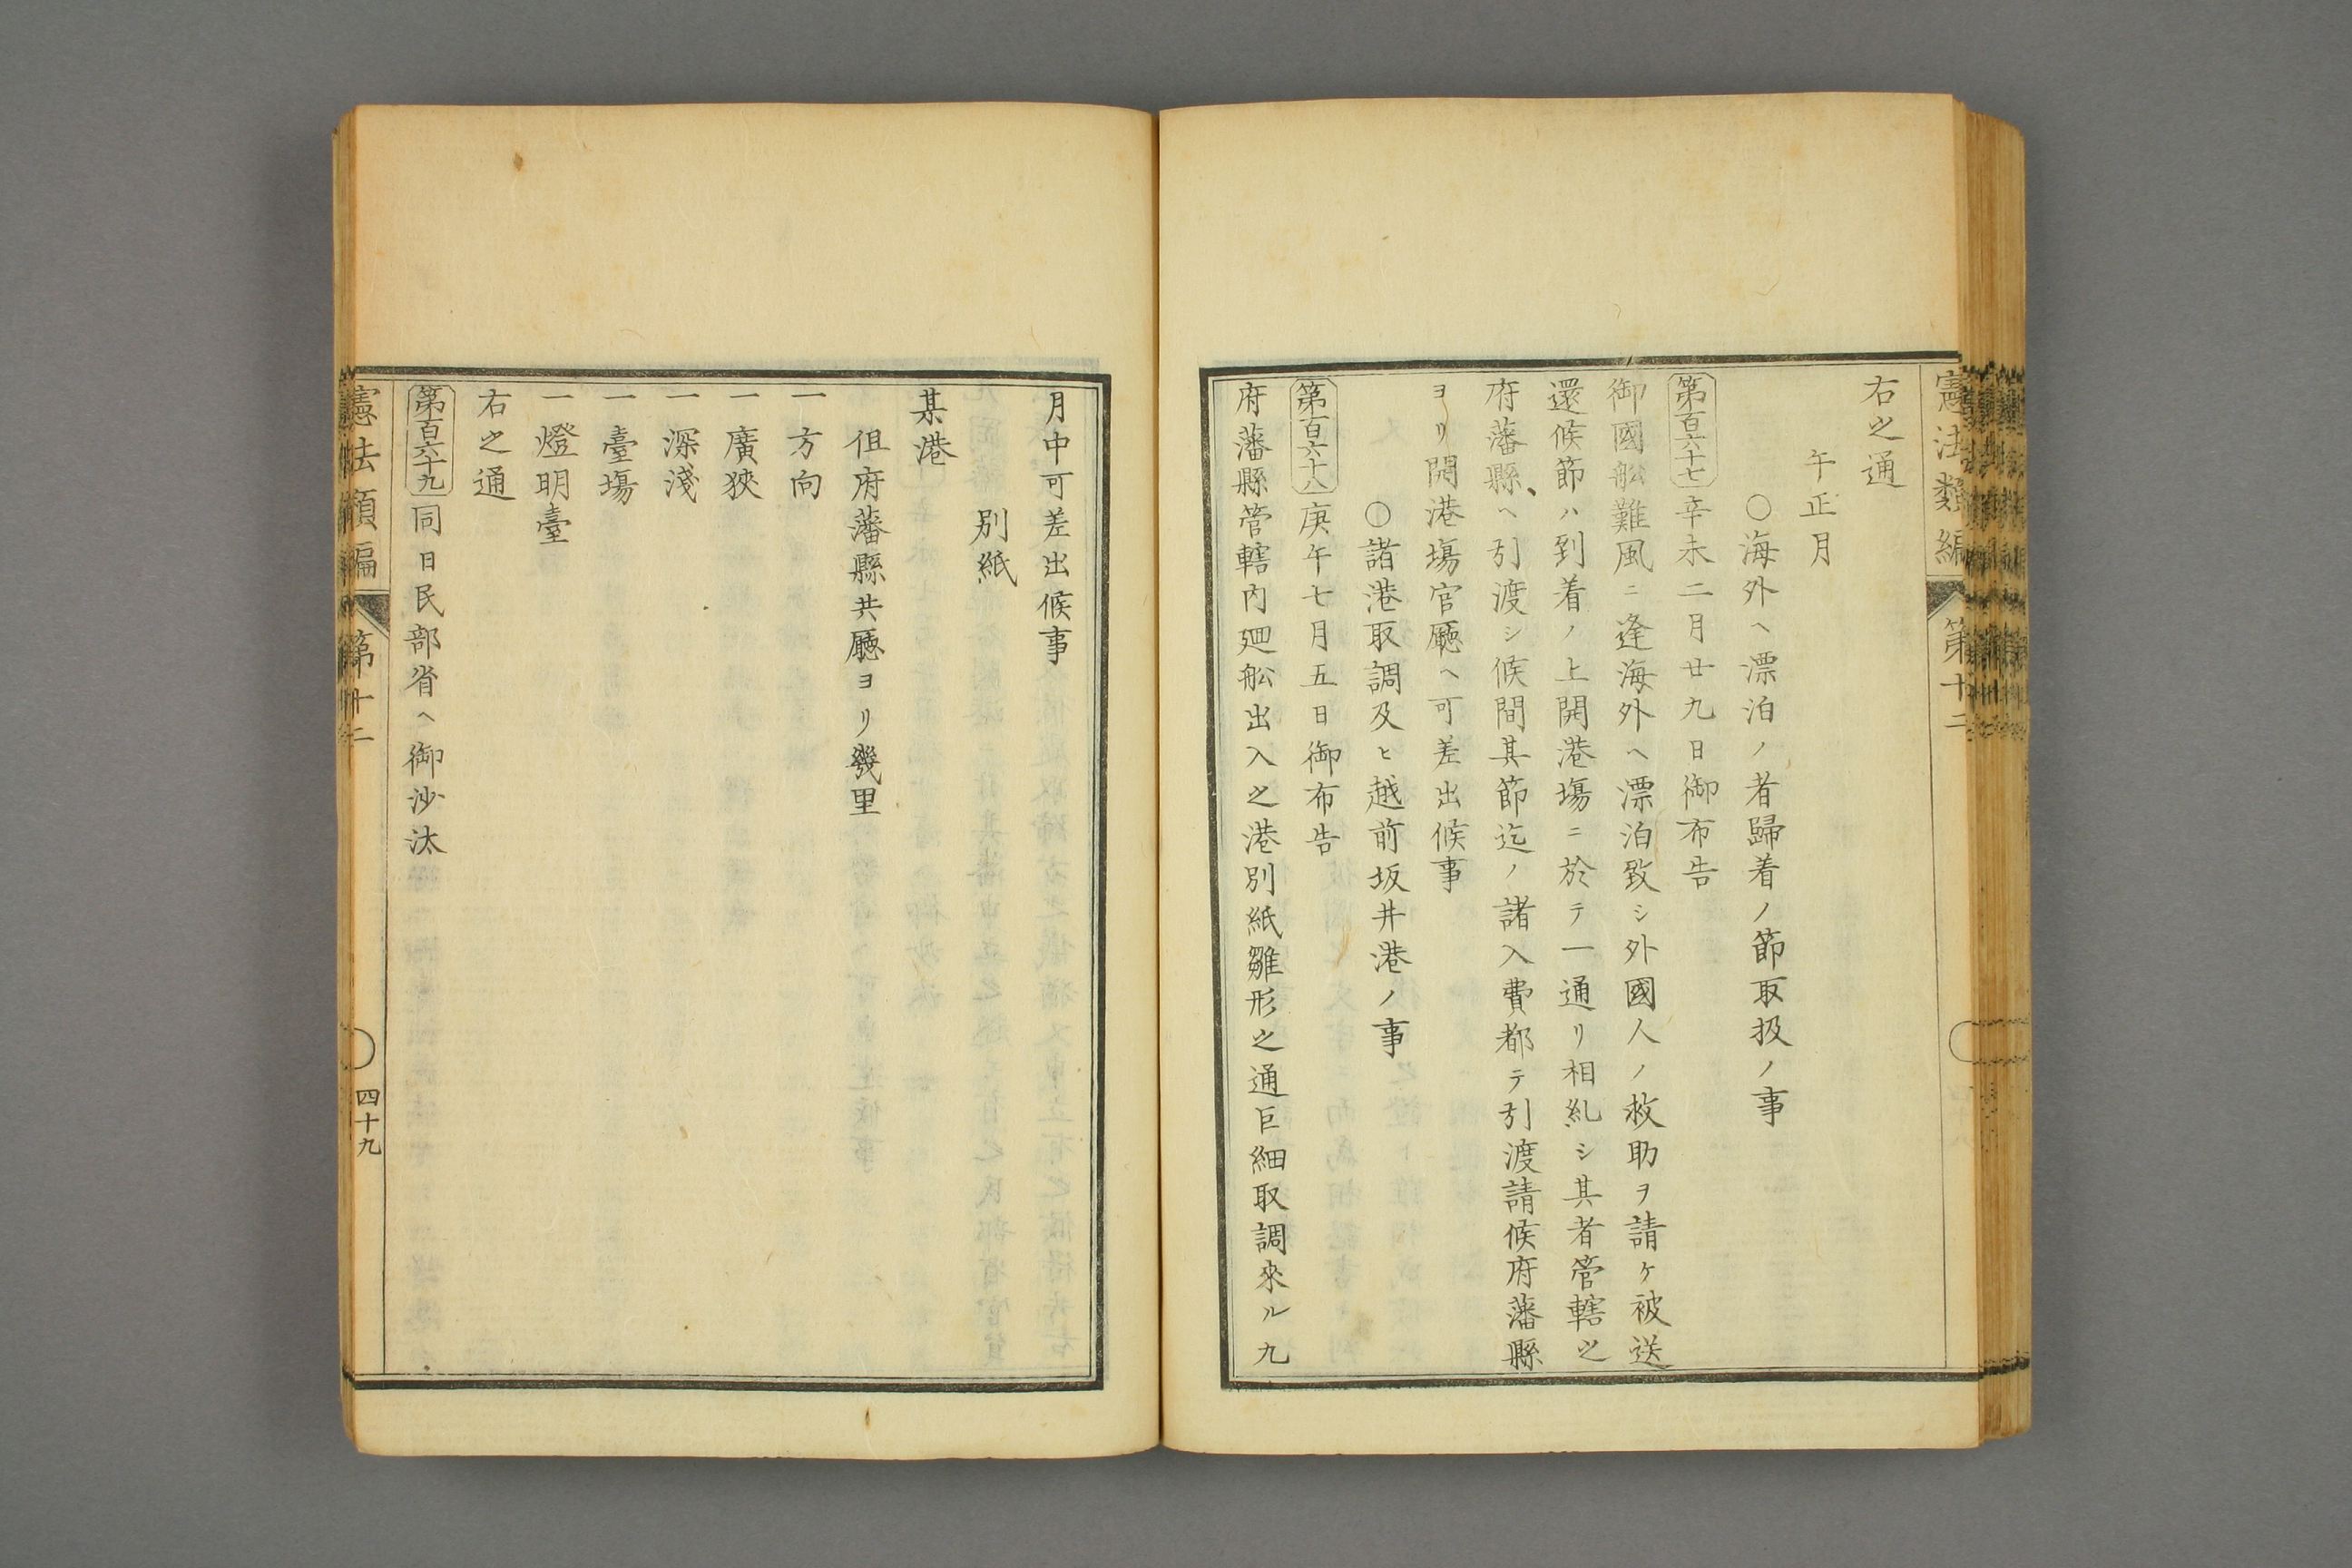 憲法類編 第十二
右之通
午正月
○海外ヘ漂泊ノ者歸着ノ節取扱ノ事
第百六十七 辛未二月廿九日御布告
御國舩難風ニ逢海外ヘ漂泊致シ外國人ノ救助ヲ請ケ被送
還候節ハ到着ノ上開港場ニ於テ一通リ相糺シ其者管轄之
府藩縣、ヘ引渡シ候間其節迄ノ諸入費都テ引渡請候府藩縣
ヨリ開港場官廳ヘ可差出候事
○諸港取調及ヒ越前坂井港ノ事
第百六十八 庚午七月五日御布告
府藩縣管轄内廻舩出入之港別紙雛形之通巨細取調來ル九
月中可差出候事
別紙
某港
但府藩縣共廳ヨリ幾里
一方向
一廣狹
一深淺
一臺場
一燈明臺
右之通
第百六十九 同日民部省ヘ御沙汰
憲法類編 第十二 四十九